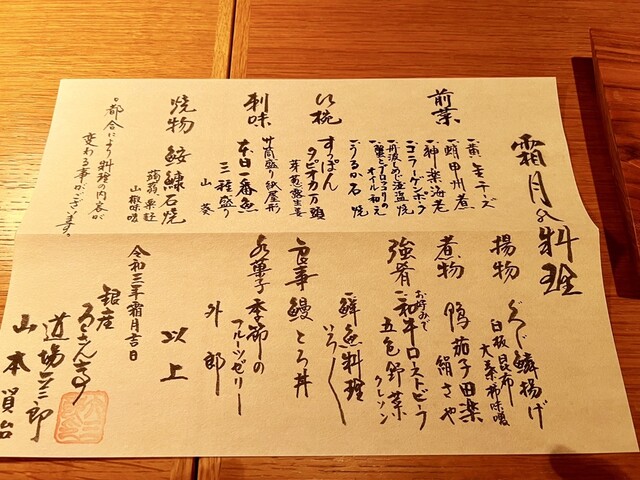 霜月の料理
前菜
一黄金チーズ
一蛸甲州煮
一神楽海老
一コラーゲンボーラ
一丹波しめじ塩盗焼
一蟹とブロッコリのオイル和え
一うるか石焼
沁椀
すっぽん
タピオカ万頭
芽葱露生姜
刺味
竹筒盛り紙屋形
本日一番魚
三種盛り
山葵
焼物
鮟鱇石焼
蒟蒻 栗麩
山椒味噌
○都合により料理の内容が
変わる事がございます。
揚物
ぐじ鱗揚げ
白板昆布
大葉柿味噌
煮物
鴨茄子田楽
絹さや
強肴
お好みで
一和牛ローストビーフ
五色野菜
クレソン
一鮮魚料理
いろいろ
食事
鰻とろ丼
水菓子
季節の
フルーツゼリー
外郎
以上
令和三年霜月吉日
銀座
ろくさん亭
道場六三郎
山本員治